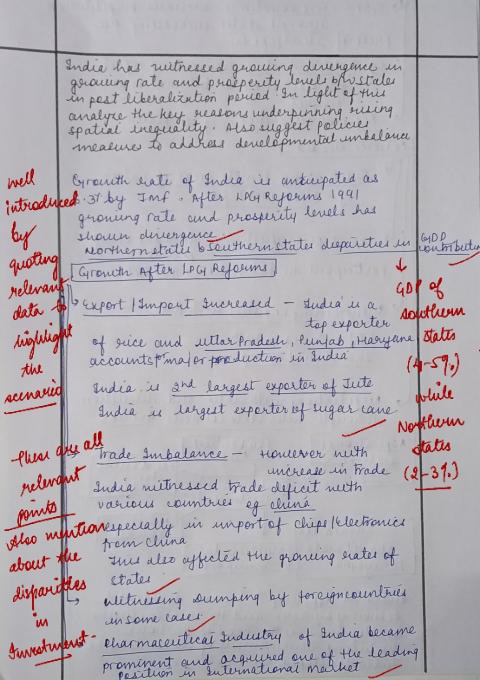 India has witnessed growing divergence in
growing rate and prosperity levels b/w states
in post liberalization period. In light of this
analyze the key reasons underpinning rising
spatial inequality. Also suggest policies
measure to address developmental imbalance
Growth rate of India is anticipated as
by Imf. After LPG Reforms 1991
growing rate and prosperity levels has
shown divergence.
Northern states & Southern states disparities in GDP
contribution
Growth After LPG Reforms
Export/Import Increased – India is a
top exporter
of rice and Uttar Pradesh, Punjab, Haryana
accounts major production in India
India is 2nd largest exporter of Jute
India is largest exporter of Sugar cane
Trade Imbalance – However with
increase in trade
India witnessed trade deficit with
various countries eg China
especially in import of chips/electronics
from China
Thus also affected the growing rates of
states.
Witnessing dumping by foreign countries
in some cases.
Pharmaceutical Industry of India became
prominent and acquired one of the leading
position in International market
well
introduced
by
quoting
relevant
data to
highlight
the
scenario
These are all
relevant
points
Also mention
about the
disparities
in
Investment.
GDP of
Southern
States
(4-5%)
while
Northern
states
(2-3%)